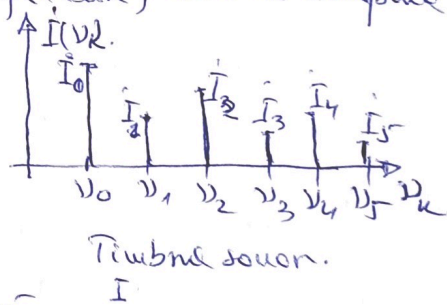 İ(νk.
İ0 İ1 İ2 İ3 İ4 İ5
ν0 ν1 ν2 ν3 ν4 ν5 νk
Timbrul sonor.
I